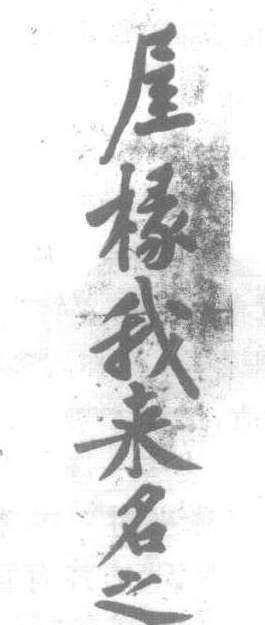 屋椽我来名之